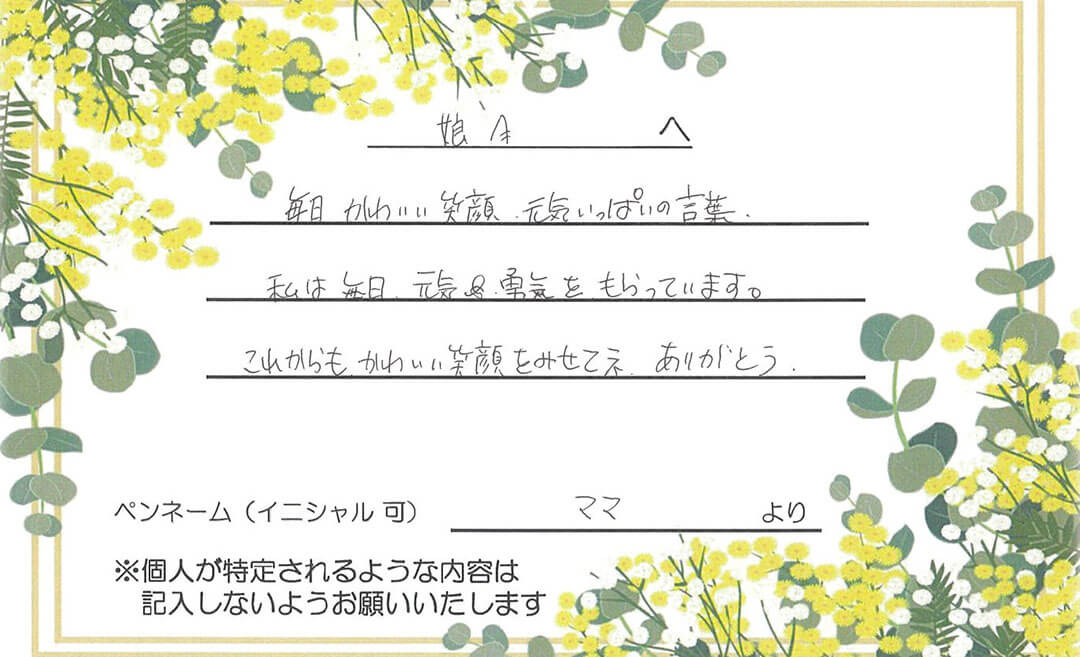 娘A へ
毎日 かわいい笑顔、元気いっぱいの言葉、
私は毎日、元気&勇気を もらっています。
これからも、かわいい笑顔をみせてネ、ありがとう、
ペンネーム（イニシャル 可） ママ より
※個人が特定されるような内容は
記入しないようお願いいたします